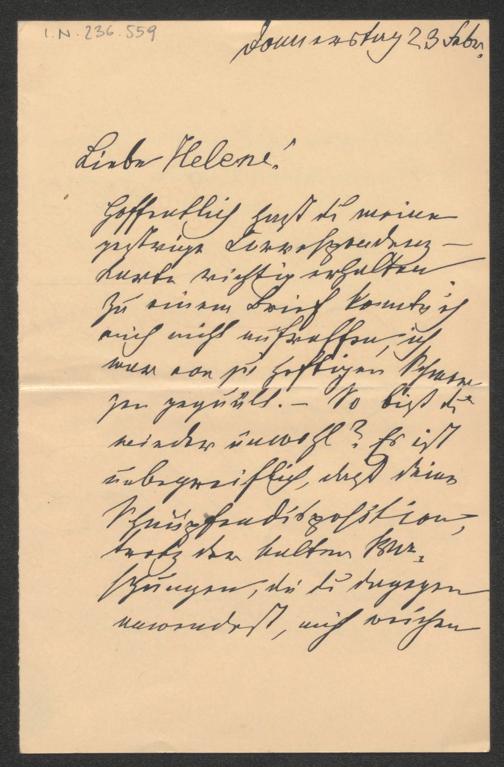 I.N. 236.559
Donnerstag 23 Febr.
Liebe Helene!
Hoffentlich hast du meine
gestrige Correspondenz-
karte richtig erhalten.
Zu einem Brief konnte ich
mich nicht aufraffen, ich
war von so heftigen Schmer-
zen gequält. – So bist du
wieder unwohl? Es ist
unbegreiflich, daß deine
Schnupfendisposition,
trotz der kalten
die du dagegen
anwendest, nicht weichen